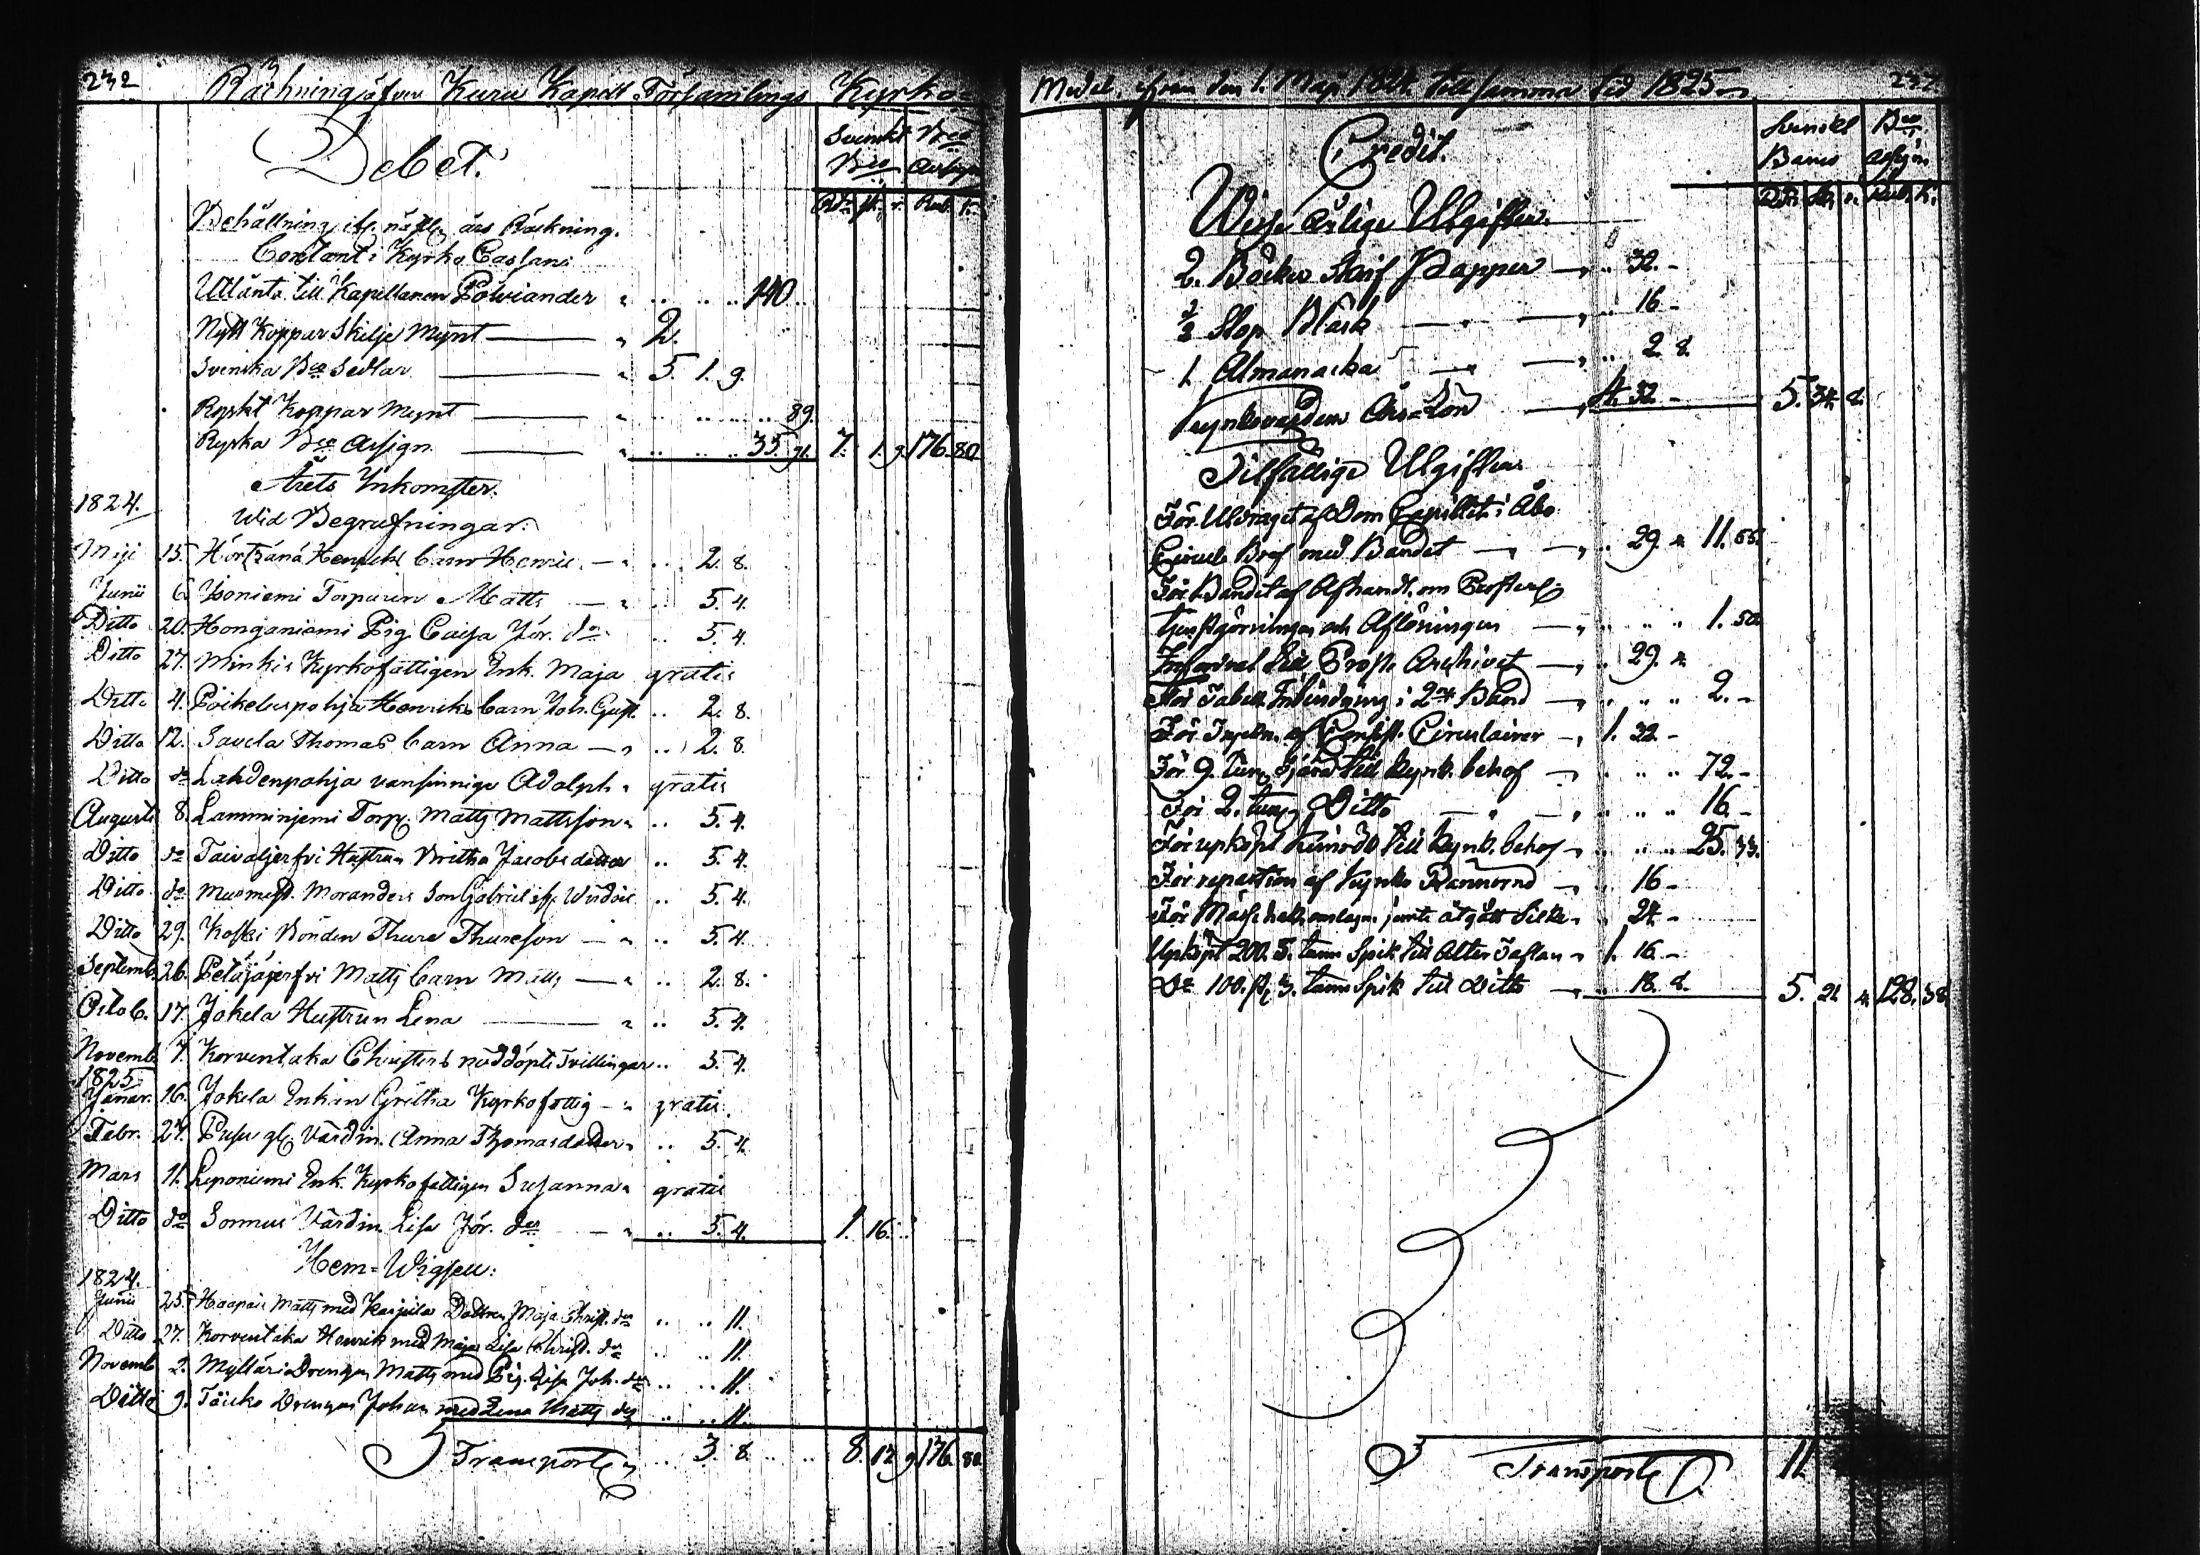 232 Räkning öfver Kuru Kapell Församlings Kyrko=
Debet.
Svenskt Bco Bco Assign
Rdr sk. r. Rub. k.
Behållning efter års Räkning.
Contant i Kyrko Cassan:
Utlånta till Kapellanen Polviander " .. .. .. 140 ..
Nytt Koppar Skilje Mynt — " 2.
Svenska Bco Sedlar — " 5. 1. 9.
Ryskt Koppar Mynt — " .. .. .. .. 89.
Ryska Bco Assign. — " .. .. .. 35. 91. 7. 1. 9. 176. 80
Årets Inkomster.
1824. Wid Begrafningar.
Maji 15. Henrichs barn Henric. — " .. 2. 8.
Junii 6. Isoniemi Torparen Matts — " .. 5. 4.
Ditto 20. Honganiemi Pig. Caisa Jör. dr. .. 5. 4.
Ditto 27. Minkis Kyrkofattigen Enk. Maja gratis
Ditto 4. Poikeluspohja Henriks barn Joh. Gust. .. 2. 8.
Ditto 12. Savela Thomas barn Anna — " .. 2. 8.
Ditto do Lahdenpohja vansinnige Adolph " gratis
Augusti 8. Lamminjemi Torp. Matts Mattsson " .. 5. 4.
Ditto do Taivaljerfvi Hustrun Britha Jacobsdotter .. 5. 4.
Ditto do Moranders Son Gabriel .. 5. 4.
Ditto 29. Koski Bonden Thure Thuresson — " .. 5. 4.
Septemb. 26. Petäjäjerfvi Matts barn Matts — " .. 2. 8.
Octob. 17. Jokela Hustrun Lena — " .. 5. 4.
Novemb. 7. Korventaka Christers nöddöpte Tvillingar .. 5. 4.
1825
Januar. 16. Jokela Enkan Gretha Kyrkofattig — " gratis.
Febr. 27. Pusu gl. Värdin. Anna Thomasdotter " .. 5. 4.
Mars 11. Leponiemi Enk. Kyrkofattigen Susanna " gratis
Ditto do Sonnus Värdin. Lisa Jör. dr — " .. 5. 4. 1. 16. ..
Hem=Wigsell:
1824.
Junii 25. Haapais Matts med Karjula Dottren Maja Christ. dr .. .. 11.
Ditto 27. Korventaka Henrik med Maja Lisa Christ. dr .. .. 11.
Novemb. 2. Mylläri Drengen Matts med Pig. Lisa Joh. dr .. .. 11.
Ditto 9. Drengen Johan med Lena Matts dr .. .. 11.
Transport .. 3. 8. .. .. 8. 17. 9. 176. 80
Medel, ifrån den 1. Maji 1824. till samma tid 1825
Credit.
Svenskt Banco Bco Assign.
Rdr. sk. r. Rub. k.
Wisse årlige Utgifter.
2. Böcker Skrif Papper — " .. 32. -
1/2 Stop Bläck — " — " .. 16 -
1. Almanacka — " — " .. 2. 8.
Kyrkovärdens Års=Lön — " 4. 32 - 5. 34. 8.
Tilfällige Utgifter
För Utdraget af Dom Capitlets i Åbo
Circul. Bref med Bandet — " — " .. 29. 4. 11. 55.
För Bandet af Afhandl. om Prosterl.
tjenstgörningen och Aflöningen — " .. .. .. 1. 50
till Prost. Archivet — " .. 29. 4.
För Tabell. Inbindning i 2ne Band — " .. .. .. 2. -
För af Consist. Circulairer — " 1. 32 -
För 9. tun. tjära till Kyrk. behof — " .. .. .. 72. -
För 2. tun. Ditto — " — " .. .. .. 16. -
För upköpt till Kyrk. behof " .. .. .. 25. 33.
För reparation af Kyrko — " .. 16 -
För jemte åtgått " .. 24. -
Upköpt 200. 5. tums Spik till Altar Taflan " 1. 16. -
Do 100. st. 3. tums Spik till Ditto — " .. 18. 8. 5. 21 4. 128. 38
Transport 11.